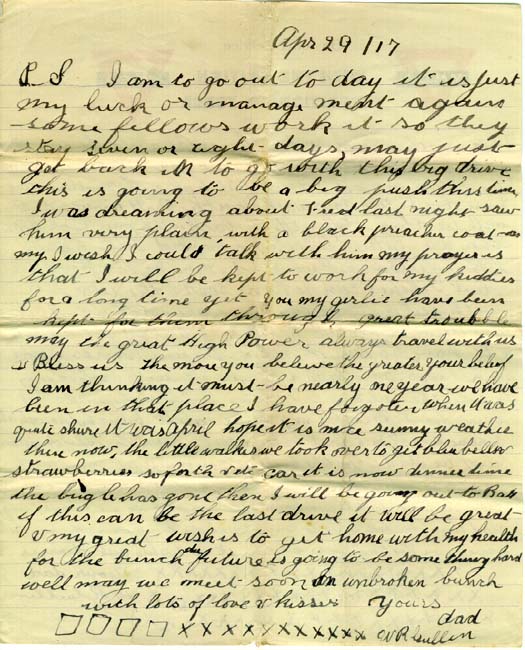 Apr 29 /17
P.S I am to go out to day it is just
my luck or manage ment again
some fellows work it so they
stay seven or eight days, may just
get back in to go with this big drive
this is going to be a big push this time
I was dreaming about Fred last night saw
him very plain with a black preacher coat on
my I wish I could talk with him my prayer is
that I will be kept to work for my kiddies
for a long time yet you my girlie have been
kept for them through great trouble
may the great High Power always travel with us
& Bless us the more you believe the greater your belief
I am thinking it must be nearly one year we have
been in that place I have forgoten when it was
quite shure it was april hope it is nice sunny weather
there now, the little walks we took over to get blue bells or
strawberries so forth & etc it is now dinner time
the bugle has gone then I will be going out to Batt
if this can be the last drive it will be great
& my great wish is to get home with my health
for the bunch the future is going to be some thing hard
well may we meet soon an unbroken bunch
with lots of love & kisses Yours
dad
WR Gullen
xxxxxxxxxxx